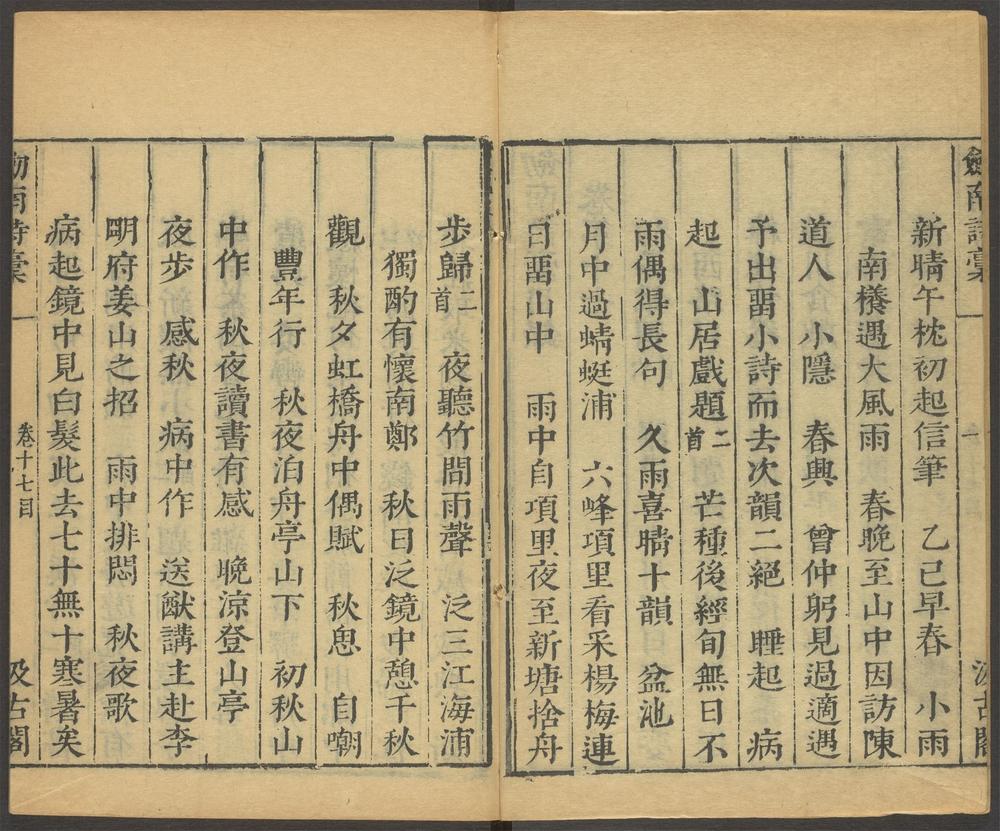 劒南詩稾
一
汲古閣
新晴午枕初起信筆　乙己早春　小雨
南檥遇大風雨　春晚至山中因訪陳
道人　小隱　春興　曾仲躬見過適遇
予出畱小詩而去次韻二絕　睡起　病
起　山居戲題二首　芒種後經旬無日不
雨偶得長句　久雨喜晴十韻　盆池
月中過蜻蜓浦　六峰項里看采楊梅連
日畱山中　雨中自項里夜至新塘捨舟
步歸二首　夜聽竹間雨聲　泛三江海浦
獨酌有懷南鄭　秋日泛鏡中憩千秋
觀　秋夕虹橋舟中偶賦　秋思　自嘲
豐年行　秋夜泊舟亭山下　初秋山
中作　秋夜讀書有感　晚涼登山亭
夜步　感秋　病中作　送猷講主赴李
明府姜山之招　雨中排悶　秋夜歌
病起鏡中見白髮此去七十無十寒暑矣
劒南詩稾
一
卷十七目
汲古閣